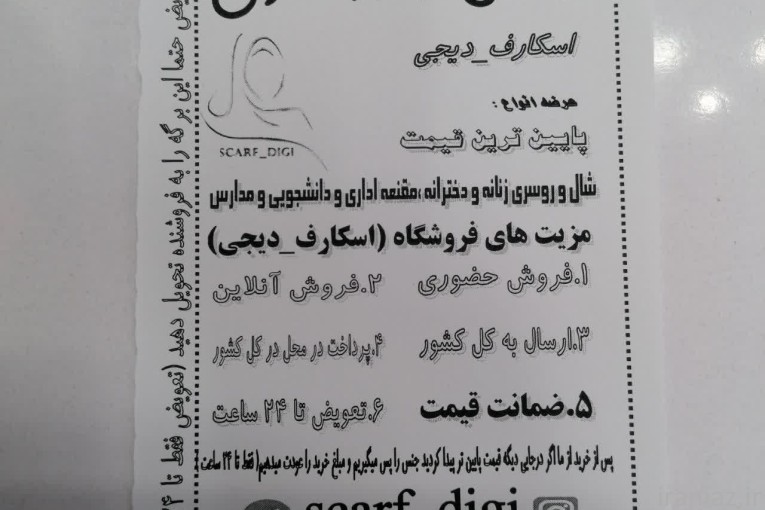 اسکارف_دیجی
SCARF_DIGI
عرضه انواع :
پایین ترین قیمت
شال و روسری زنانه و دخترانه ،مقنعه اداری و دانشجویی و مدارس
مزیت های فروشگاه (اسکارف_دیجی)
۱.فروش حضوری ۲.فروش آنلاین
۳.ارسال به کل کشور ۴.پرداخت در محل در کل کشور
۵.ضمانت قیمت ۶.تعویض تا ۲۴ ساعت
پس از خرید از ما اگر درجایی دیگه قیمت پایین تر پیدا کردید جنس را پس میگیریم و مبلغ خرید را عودت میدهیم( فقط تا ۲۴ ساعت )
scarf_digi
حتما این برگه را به فروشنده تحویل دهید (تعویض فقط تا ۲۴